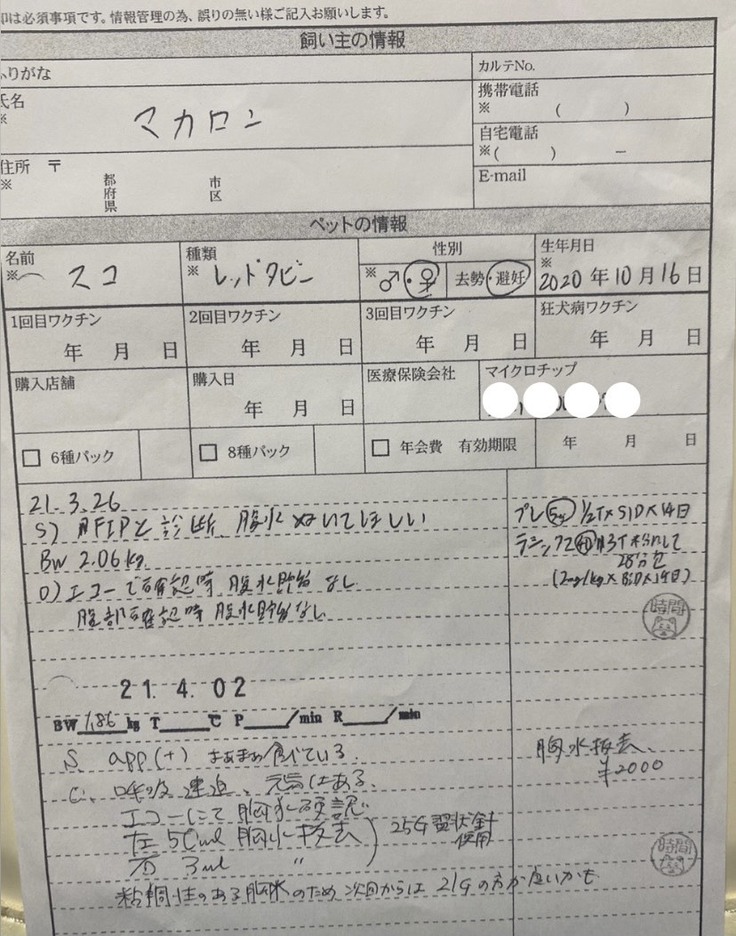 印は必須事項です。情報管理の為、誤りの無い様ご記入お願いします。
飼い主の情報
ふりがな
カルテNo.
氏名
※
マカロン
携帯電話
※ ( )
自宅電話
※( ) −
住所 〒
※
都府県
市区
E-mail
ペットの情報
名前
※
スコ
種類
※
レッドタビー
性別
※ ♂・♀ 去勢・避妊
生年月日
※
2020年10月16日
1回目ワクチン
年 月 日
2回目ワクチン
年 月 日
3回目ワクチン
年 月 日
狂犬病ワクチン
年 月 日
購入店舗
購入日
年 月 日
医療保険会社
マイクロチップ
□ 6種パック
□ 8種パック
□ 年会費 有効期限 年 月 日
21.3.26
S) FIPと診断 腹水ぬいてほしい
BW 2.06kg
O) エコーで確認時 腹水貯留なし
腹部確認時 腹水貯留なし
プレ 5mg 1/2T×SID×14日
ラシックス 粉して
28分包
(2mg/kg×BID×14日)
時間
21. 4. 02
BW 1.86 kg T ℃ P /min R /min
S. app(+) まあまあ食べている.
呼吸速迫、元気はある.
エコーにて胸水確認
左 50ml 胸水抜去
右 3ml 〃
25G 翼状針
使用
粘稠性のある胸水のため 次回からは 21Gの方が良いかも
胸水抜去.
¥2000
時間